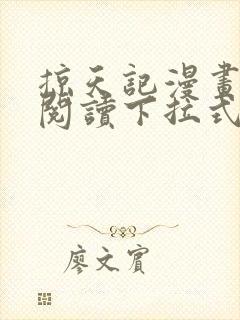 掠天記漫畫
閱讀下拉式
廖文賓